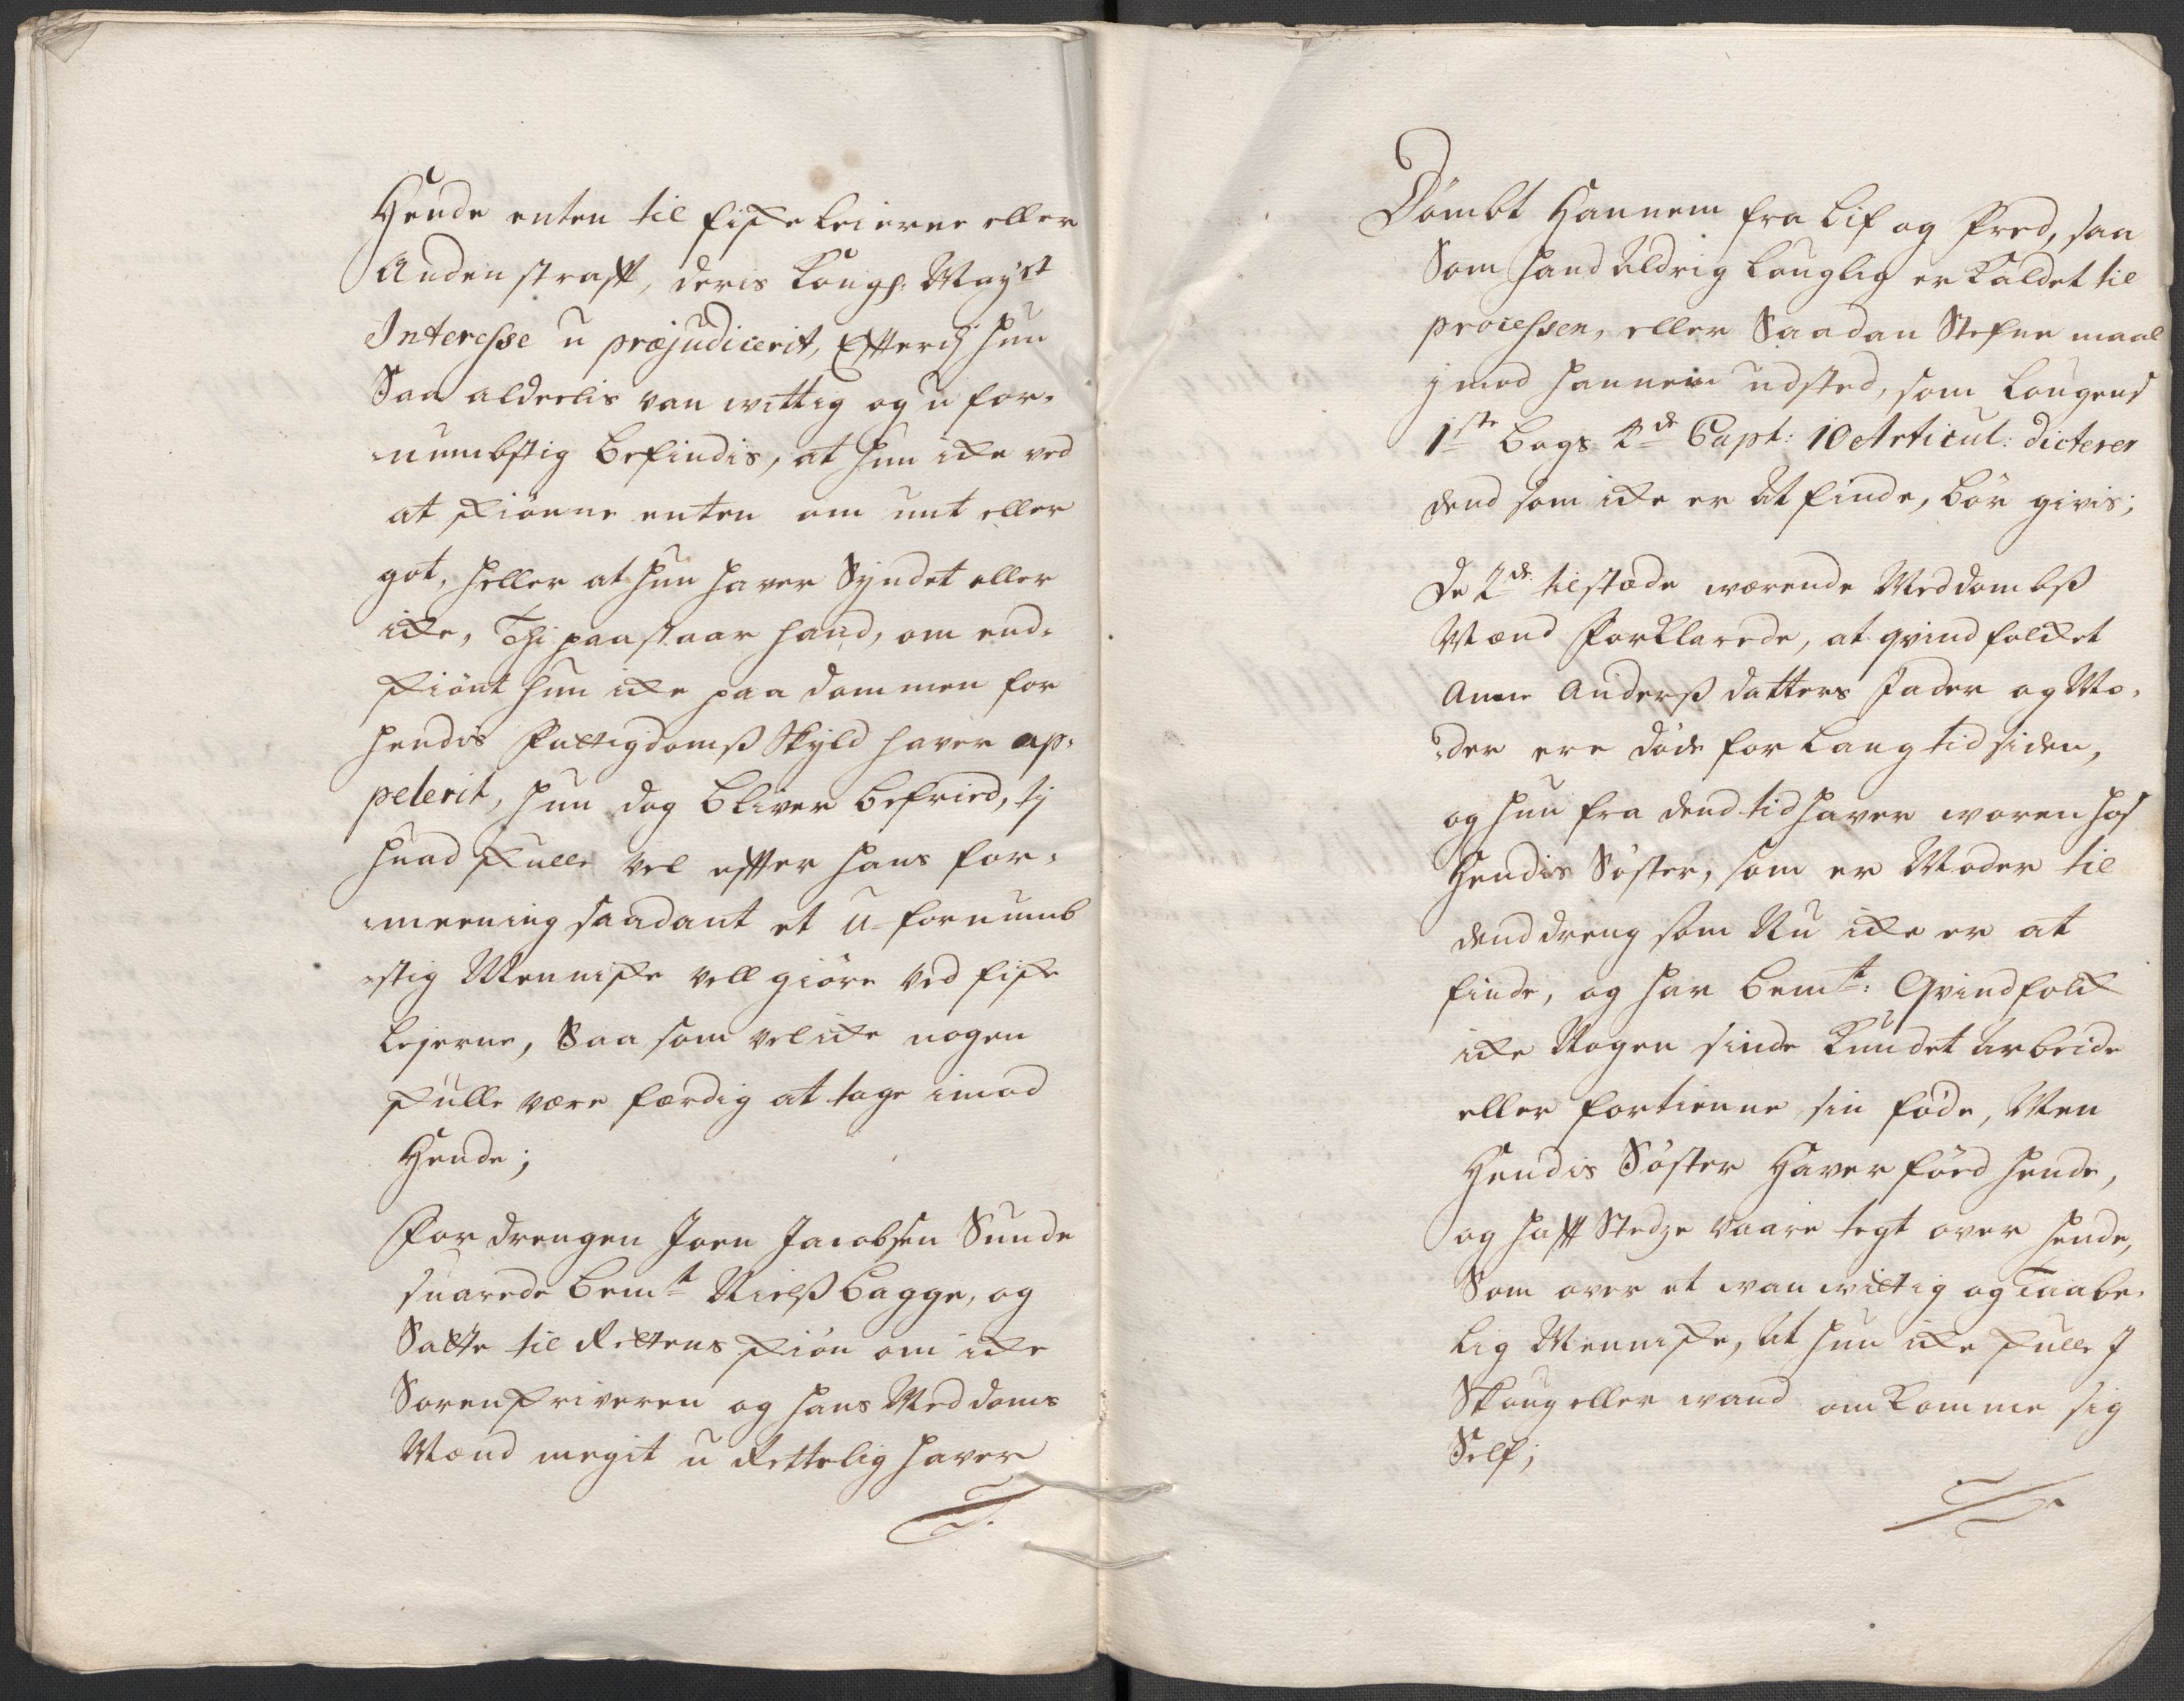 Hende enten til fiske leierne eller
Anden straff, deris Kongl: Mayst
Interesse u præjudicerit, Efterdj hun
Saa alderlis van wittig og u for-
numbstig befindis, at hun icke ved
at skiønne enten om unt eller
got, heller at hun haver Syndet eller
icke, Thi paastaar hand, om end-
skiønt hun icke paa dommen for
hendis Fattigdomß Skyld haver ap-
pelerit, hun dog bliver befried, ty
huad skulle vel effter hans for-
meening saadant et u-fornumb
stig Menniske vell giøre ved fiske
lejerne, Saa som vel icke nogen
skulle være færdig at tage imod
Hende;
For drengen Joen Jacobsen Sunde
suarede bemt Nielß Bagge, og
Satte til Rettens skiøn om icke
Sorenskriveren og hans Meddoms
Mænd megit u Rettelig haver
Dømbt Hannem fra Lif og Fred, saa
Som hand aldrig lauglig er kaldet til
processen, eller Saadan Stefne maal
j mod hannem udsted, som Lougens
1ste bogs 4de Capt: 10 Articul: dicterer
dend som icke er at finde, bør givis;
De 2de tilstæde wærende Meddombß
Mænd Forklarede, at qvindfolcket
Anne Anderß datters Fader og Mo-
der ere døde for lang tid siden,
og hun fra dend tid haver woren hos
Hendis Søster, som er Moder til
dend dreng som Nu icke er at
finde, og har bemt: Qvindfolck
icke Nogen sinde kundet arbeide
eller fortienne sin føde, Men
Hendis Søster Haver föed hende,
og hafft Stedze vaare tegt over hende,
Som over et wanwittig og Taabe-
lig Menniske, at hun icke skulle J
Skoug eller wand omkomme sig
Self;